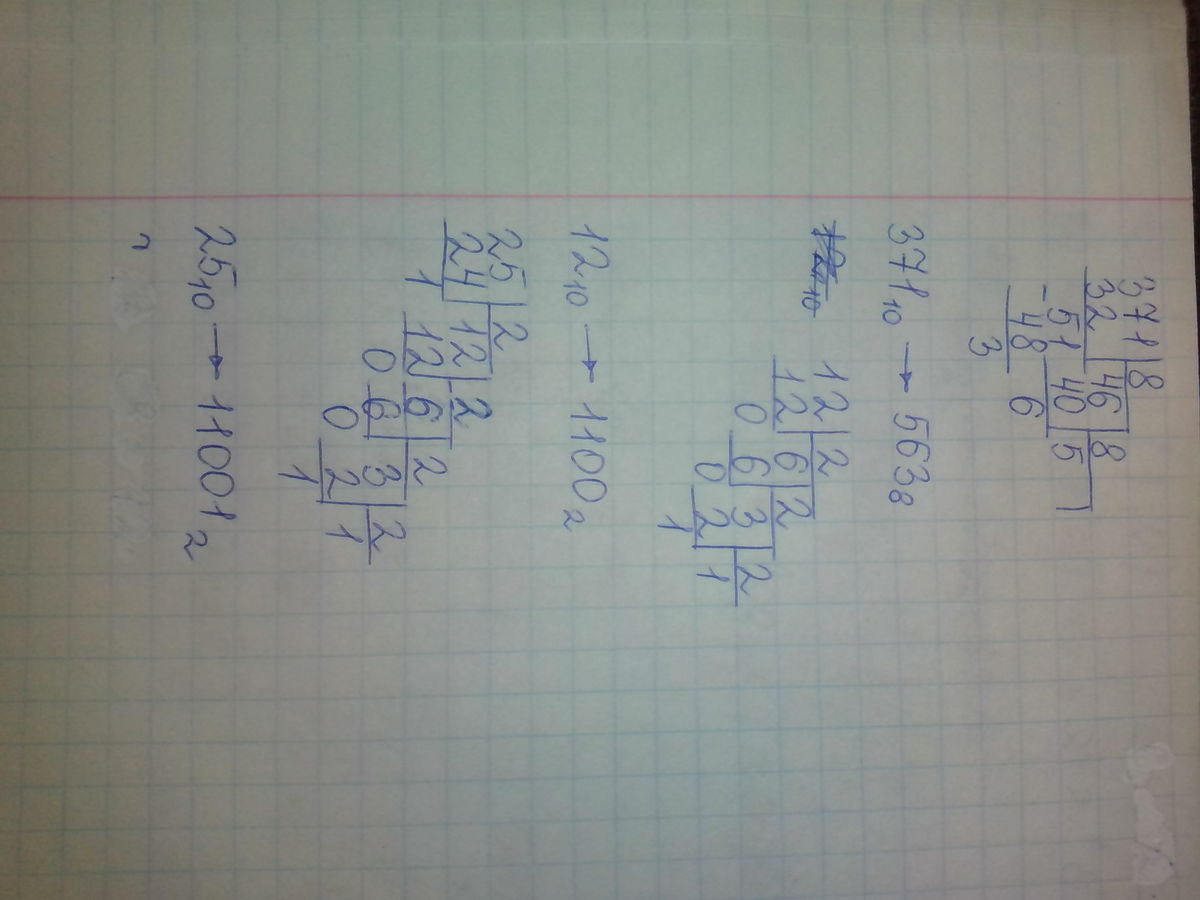 371 | 8
32 | 46 | 8
-51 40 | 5
48 6
3
371₁₀ → 563₈
12 | 2
12 | 6 | 2
0 6 | 3 | 2
0 2 | 1
1
12₁₀ → 1100₂
25 | 2
24 | 12 | 2
1 12 | 6 | 2
0 6 | 3 | 2
0 2 | 1
1
25₁₀ → 11001₂